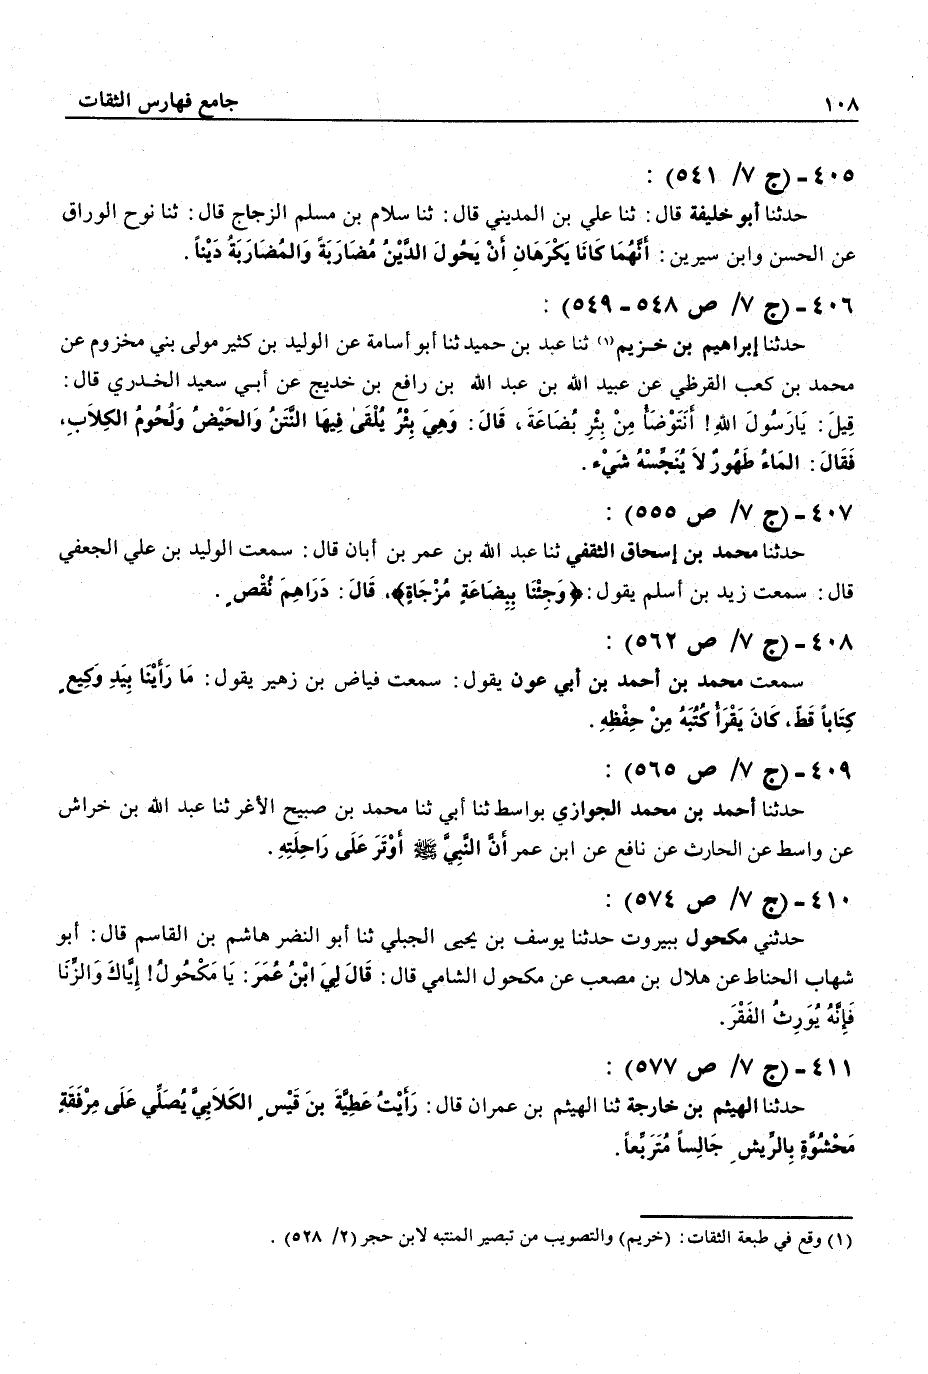 ١٠٨ جامع فهارس الثقات
٤٠٥ - (ج ٧/ ٥٤١) :
حدثنا أبو خليفة قال : ثنا علي بن المديني قال : ثنا سلام بن مسلم الزجاج قال : ثنا نوح الوراق
عن الحسن وابن سيرين : أَنَّهُمَا كَانَا يَكْرَهَانِ أَنْ يَحُولَ الدَّيْنُ مُضَارَبَةً وَالمُضَارَبَةُ دَيْناً .
٤٠٦ - (ج ٧/ ص ٥٤٨ - ٥٤٩) :
حدثنا إبراهيم بن خـزيم(١) ثنا عبد بن حميد ثنا أبو أسامة عن الوليد بن كثير مولى بني مخزوم عن
محمد بن كعب القرظي عن عبيد الله بن عبد الله بن رافع بن خديج عن أبـي سعيد الخـدري قال :
قِيلَ : يَارَسُولَ اللهِ! أَنَتَوْضَأُ مِنْ بِئْرِ بُضَاعَةَ ، قَالَ : وَهِيَ بِئْرٌ يُلْقَىٰ فِيهَا النَّتَنُ وَالحَيْضُ وَلُحُومُ الكِلاَبِ،
فَقَالَ : المَاءُ طَهُورٌ لاَ يُنَجِّسْهُ شَيْء .
٤٠٧ - (ج ٧/ ص ٥٥٥) :
حدثنا محمد بن إسحاق الثقفي ثنا عبد الله بن عمر بن أبان قال : سمعت الوليد بن علي الجعفي
قال : سمعت زيد بن أسلم يقول : ﴿وَجِئْنَا بِبِضَاعَةٍ مُزْجَاةٍ﴾، قَالَ : دَرَاهِمَ نُقْصٍ .
٤٠٨ - (ج ٧/ ص ٥٦٢) :
سمعت محمد بن أحمد بن أبي عون يقول : سمعت فياض بن زهير يقول : مَا رَأَيْنَا بِيَدِ وَكِيعٍ
كِتَاباً قَطّ، كَانَ يَقْرَأُ كُتُبَهُ مِنْ حِفْظِهِ .
٤٠٩ - (ج ٧/ ص ٥٦٥) :
حدثنا أحمد بن محمد الجوازي بواسط ثنا أبي ثنا محمد بن صبيح الأغر ثنا عبد الله بن خراش
عن واسط عن الحارث عن نافع عن ابن عمر أَنَّ النَّبِيَّ ﷺ أَوْتَرَ عَلَى رَاحِلَتِهِ .
٤١٠ - (ج ٧/ ص ٥٧٤) :
حدثني مكحول ببيروت حدثنا يوسف بن يحيى الجبلي ثنا أبو النضر هاشم بن القاسم قال : أبو
شهاب الحناط عن هلال بن مصعب عن مكحول الشامي قال : قَالَ لِيَ ابْنُ عُمَرَ : يَا مَكْحُولُ! إِيَّاكَ وَالزِّنَا
فَإِنَّهُ يُوَرِثُ الفَقْرَ .
٤١١ - (ج ٧/ ص ٥٧٧) :
حدثنا الهيثم بن خارجة ثنا الهيثم بن عمران قال : رَأَيْتُ عَطِيَّةَ بنَ قَيْسٍ الكَلاَبِيَّ يُصَلِّي عَلَى مِرْفَقَةٍ
مَحْشُوَّةٍ بِالرِّيشِ جَالِساً مُتَرَبِّعاً .
(١) وقع في طبعة الثقات : (خريم) والتصويب من تبصير المنتبه لابن حجر (٢/ ٥٢٨) .